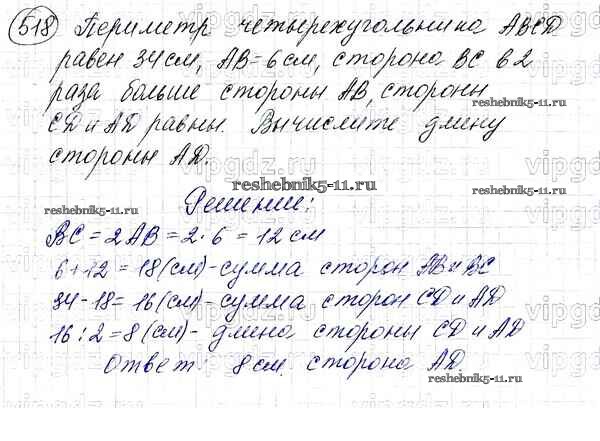 518 Периметр четырехугольника ABCD
равен 34 см, AB = 6 см, сторона BC в 2
раза больше стороны AB, стороны
CD и AD равны. Вычислите длину
стороны AD.
Решение:
BC = 2AB = 2 · 6 = 12 см
6 + 12 = 18 (см) - сумма сторон AB и BC
34 - 18 = 16 (см) - сумма сторон CD и AD
16 : 2 = 8 (см) - длина стороны CD и AD
Ответ: 8 см. сторона AD.
reshebnik5-11.ru
reshebnik5-11.ru
reshebnik5-11.ru
reshebnik5-11.ru